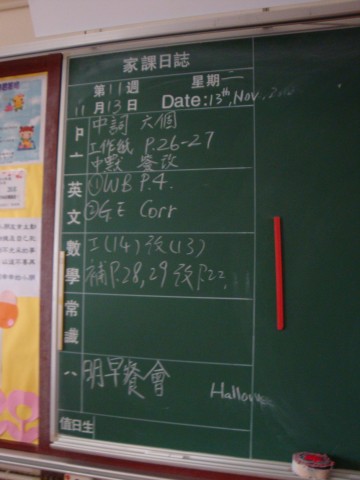 家課日誌
第11週 星期一
11月13日 Date:13th, Nov, 200
中詞 六個
工作紙 P.26-27
中默 簽改
英文 ①WB P.4.
②GE Corr
數學 工(14) 改(13)
補P.28,29 改P.22.
常識
八 明早餐會
Hallow
值日生